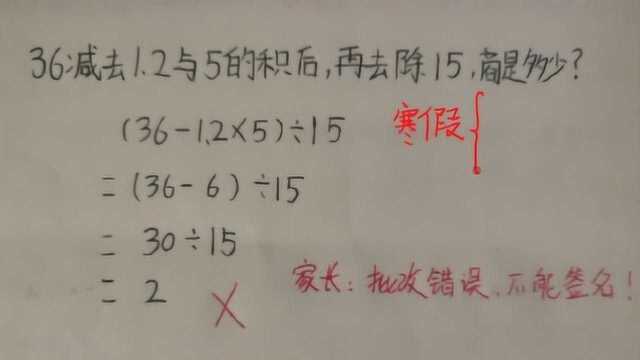 36减去1.2与5的积后,再去除15,商是多少?
(36-1.2×5)÷15
寒假{
=(36-6)÷15
=30÷15
=2
×
家长:批改错误、不能签名!